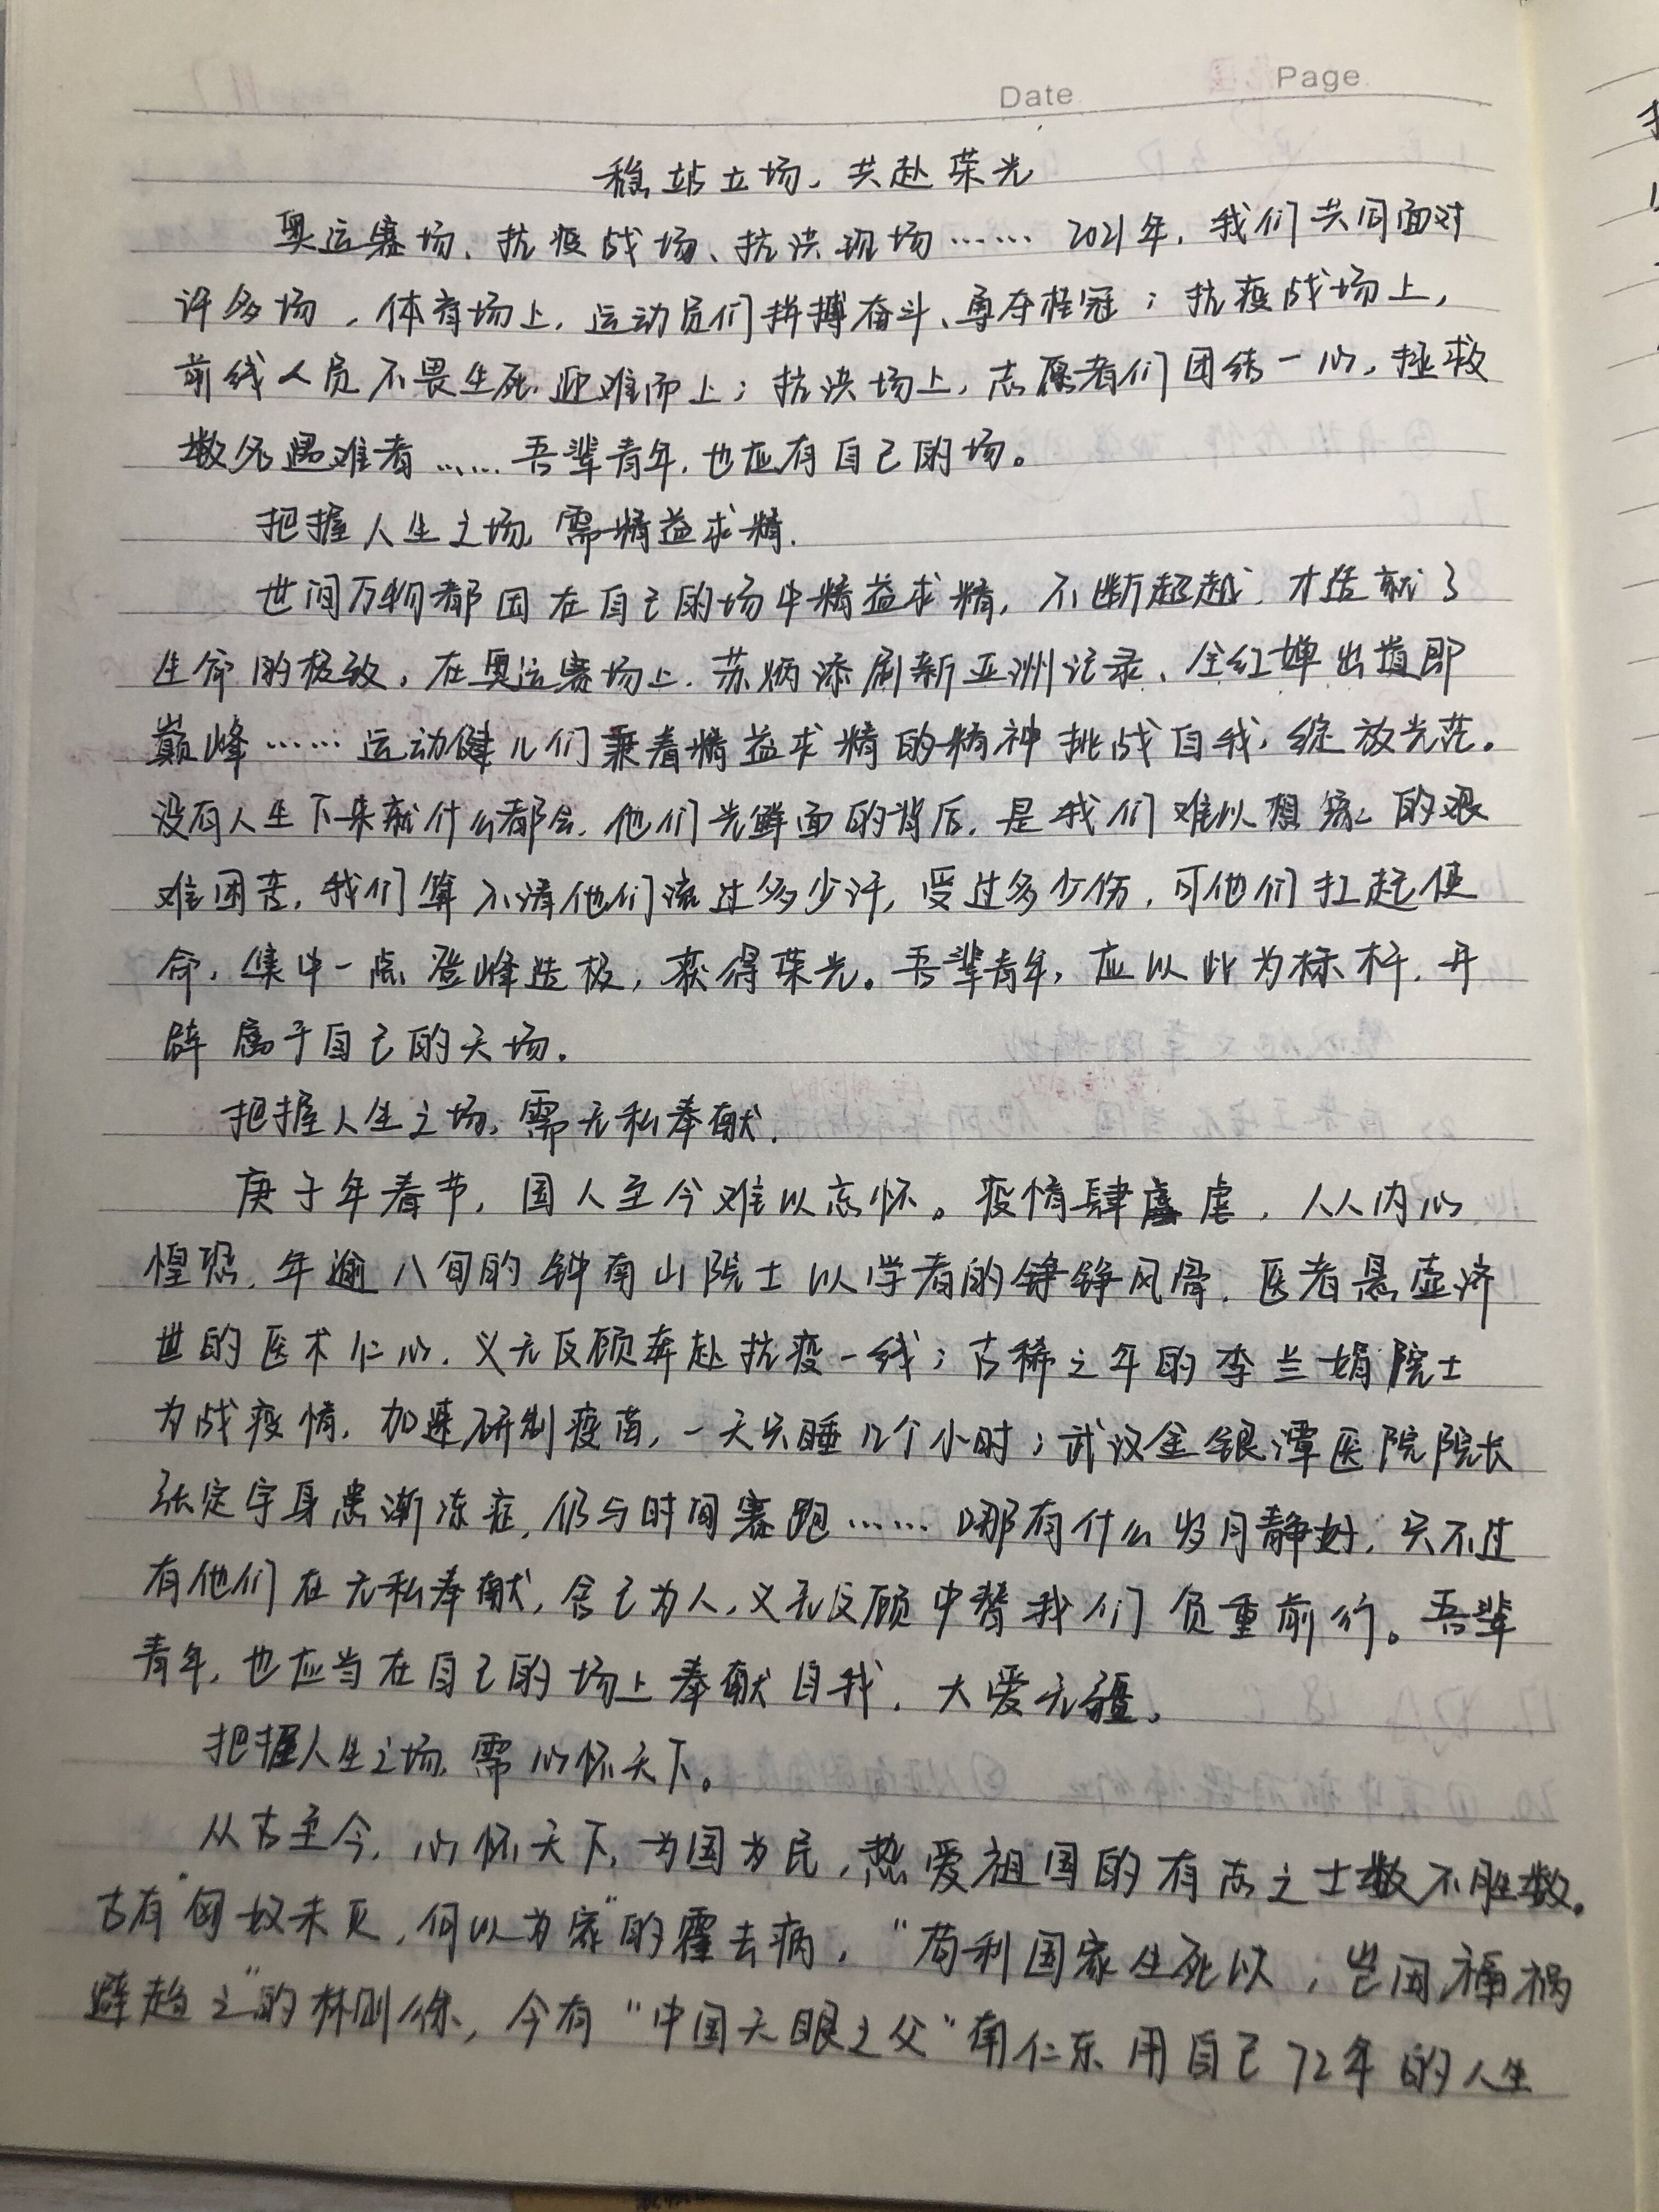 Date Page
稳站立场，共赴荣光
奥运赛场、抗疫战场、抗洪现场……2021年，我们共同面对
许多场，体育场上，运动员们拼搏奋斗、勇夺桂冠；抗疫战场上，
前线人员不畏生死，迎难而上；抗洪场上，志愿者们团结一心，拯救
数名遇难者……吾辈青年，也应有自己的场。
把握人生之场，需精益求精.
世间万物都因在自己的场中精益求精，不断超越，才造就了
生命的极致。在奥运赛场上，苏炳添刷新亚洲记录、全红婵出道即
巅峰……运动健儿们秉着精益求精的精神挑战自我，绽放光芒。
没有人生下来就什么都会，他们光鲜面的背后，是我们难以想象的艰
难困苦，我们算不清他们流过多少汗，受过多少伤，可他们扛起使
命，集中一点登峰造极，获得荣光。吾辈青年，应以此为标杆，开
辟属于自己的天场。
把握人生之场，需无私奉献.
庚子年春节，国人至今难以忘怀。疫情肆虐，人人内心
惶恐，年逾八旬的钟南山院士以学者的铮铮风骨，医者悬壶济
世的医术仁心，义无反顾奔赴抗疫一线；古稀之年的李兰娟院士
为战疫情，加速研制疫苗，一天只睡几个小时；武汉金银潭医院院长
张定宇身患渐冻症，仍与时间赛跑……哪有什么岁月静好，只不过
有他们在无私奉献，舍己为人，义无反顾中替我们负重前行。吾辈
青年，也应当在自己的场上奉献自我，大爱无疆。
把握人生之场，需心怀天下。
从古至今，心怀天下，为国为民，热爱祖国的有志之士数不胜数。
古有“匈奴未灭，何以为家”的霍去病，“苟利国家生死以，岂因福祸
避趋之”的林则徐，今有“中国天眼之父”南仁东用自己72年的人生